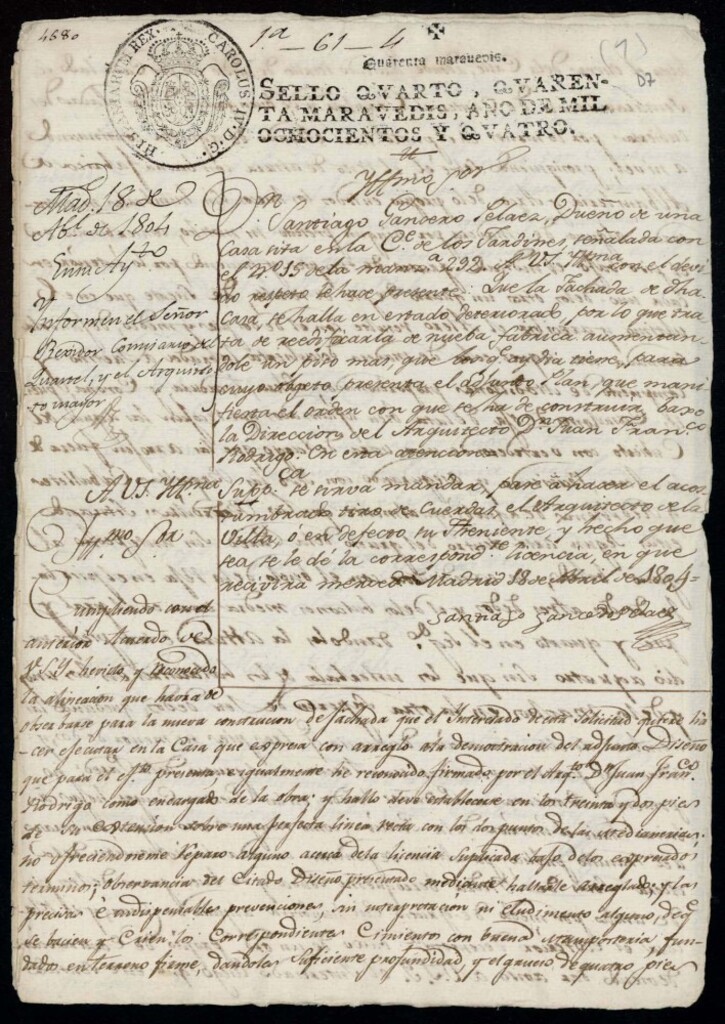 4680
1.a - 61 - 4
(7)
D7
HISPANIARUM REX. CAROLUS IV D. G.
Quarenta maravedis.
SELLO QVARTO, QVAREN-
TA MARAVEDIS, AÑO DE MIL
OCHOCIENTOS Y QVATRO.
Yttmo Sor
Mad. 18 de
Ab.l de 1804
En su Ay.to
Ynformen el Señor
Regidor Comisario del
Quartel, y el Arquitec
to mayor
D.n Santiago Gandero Pelaez, Dueño de una
Casa sita en la C.e de los Jardines, señalada con
el nº 15 de la manz.a 292. A V.S. Yttma con el devi
do respeto hace presente: Que la Fachada de dha
casa, se halla en estado deteriorado, por lo que tra
ta de reedificarla de nueba fabrica aumentan
dole un piso mas, que los q.e oy dia tiene, para
cuyo objeto presenta el adjunto Plan, que mani
fiesta el orden con que se ha de construir, baxo
la Direccion del Arquitecto D.n Juan Fran.co
Rodrigo: En esta atencion
A V.S. Ytt.ma Sup.ca se sirva mandar, pase a hacer el acos
tumbrado tiro de Cuerdas, el Arquitecto de la
Villa, ó en defecto, su Theniente, y hecho que
sea, se le dé la correspond.te licencia, en que
recivirá merced. Madrid 18 de Abril de 1804=
Santiago Gandero Pelaez
Yttmo Sor
Cumpliendo con el
anterior Acuerdo de
V.S.Y. he herido, y reconocido
la alineacion que habrá de
observarse para la nueva construccion de fachada que el Interesado de esta solicitud quiere ha
cer executar en la Casa que expresa con arreglo a la demostracion del adjunto Diseño
que para el ef.to presenta e igualmente he reconocido firmado por el Arq.to D.n Juan Fran.co
Rodrigo como encargado de la obra; y hallo deve establecerse en los treinta y dos pies
de su extension sobre una perfecta linea recta con los dos puntos de las medianerias:
no ofreciendoseme reparo alguno acerca de la licencia suplicada bajo de los expresados
terminos, observancia del Citado Diseño presentado mediante hallarse arreglado; y las
precisas é indispensables prevenciones, sin interpretacion ni eludimento alguno, de q.e
se bacien y Crien los Correspondientes Cimientos con buena mamposteria, fun-
dados en terreno firme, dandolos suficiente profundidad, y el grueso de quatro pies